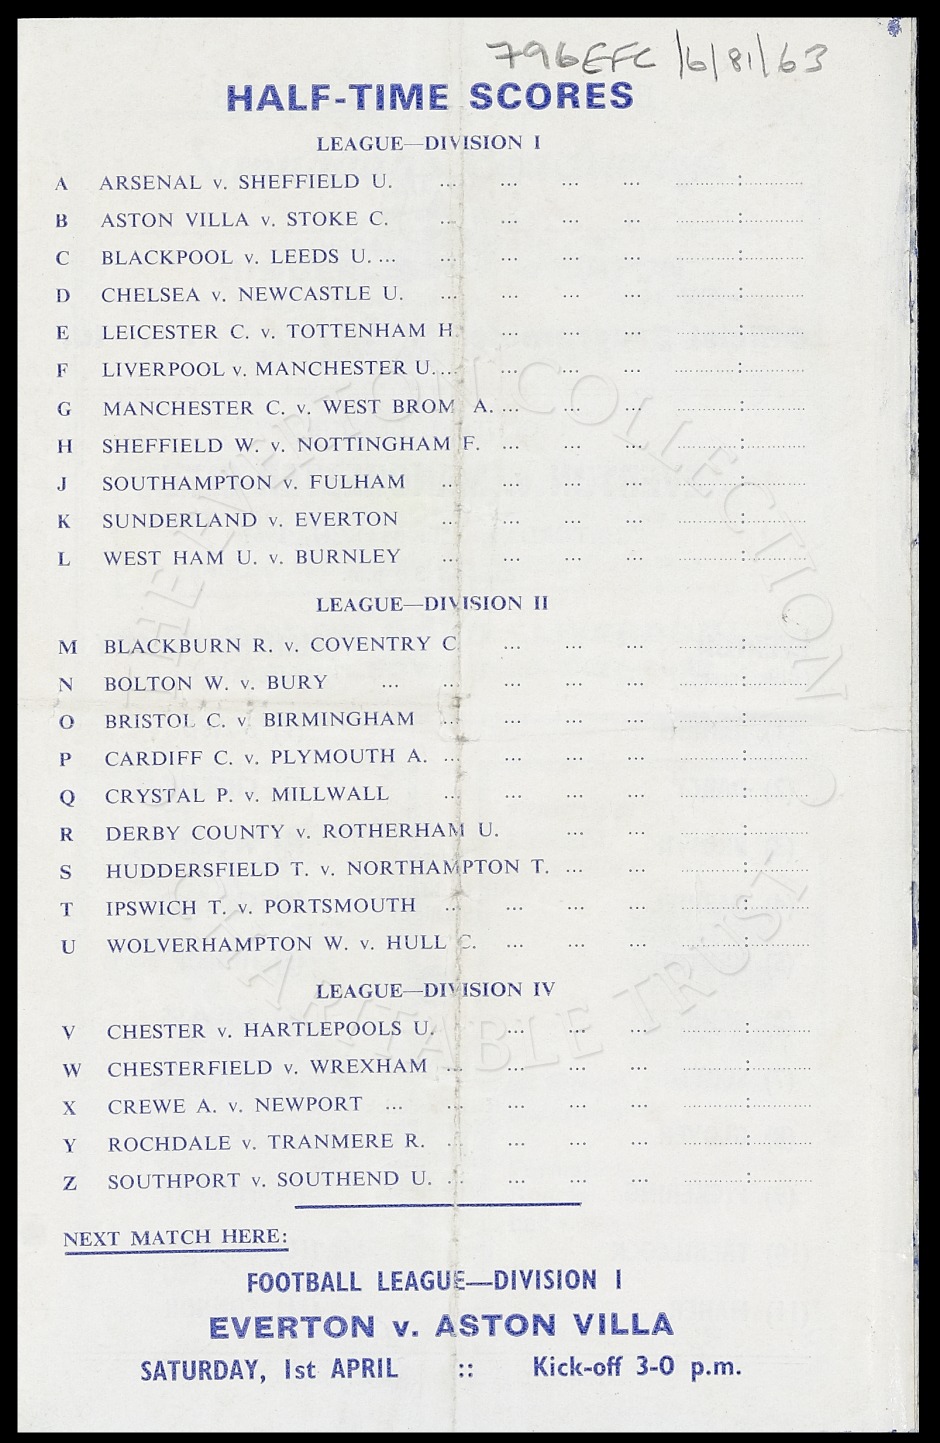 796EFC/6/81/63
HALF-TIME SCORES
LEAGUE—DIVISION I
A ARSENAL v. SHEFFIELD U. ... ... ... ... ............:............
B ASTON VILLA v. STOKE C. ... ... ... ... ............:............
C BLACKPOOL v. LEEDS U. ... ... ... ... ... ............:............
D CHELSEA v. NEWCASTLE U. ... ... ... ... ............:............
E LEICESTER C. v. TOTTENHAM H. ... ... ... ............:............
F LIVERPOOL v. MANCHESTER U. ... ... ... ... ............:............
G MANCHESTER C. v. WEST BROM A. ... ... ... ............:............
H SHEFFIELD W. v. NOTTINGHAM F. ... ... ... ............:............
J SOUTHAMPTON v. FULHAM ... ... ... ... ............:............
K SUNDERLAND v. EVERTON ... ... ... ... ............:............
L WEST HAM U. v. BURNLEY ... ... ... ... ............:............
LEAGUE—DIVISION II
M BLACKBURN R. v. COVENTRY C ... ... ... ............:............
N BOLTON W. v. BURY ... ... ... ... ... ............:............
O BRISTOL C. v. BIRMINGHAM ... ... ... ... ............:............
P CARDIFF C. v. PLYMOUTH A. ... ... ... ... ............:............
Q CRYSTAL P. v. MILLWALL ... ... ... ... ............:............
R DERBY COUNTY v. ROTHERHAM U. ... ... ............:............
S HUDDERSFIELD T. v. NORTHAMPTON T. ... ... ............:............
T IPSWICH T. v. PORTSMOUTH ... ... ... ... ............:............
U WOLVERHAMPTON W. v. HULL C. ... ... ... ............:............
LEAGUE—DIVISION IV
V CHESTER v. HARTLEPOOLS U. ... ... ... ............:............
W CHESTERFIELD v. WREXHAM ... ... ... ... ............:............
X CREWE A. v. NEWPORT ... ... ... ... ... ............:............
Y ROCHDALE v. TRANMERE R. ... ... ... ... ............:............
Z SOUTHPORT v. SOUTHEND U. ... ... ... ... ............:............
NEXT MATCH HERE:
FOOTBALL LEAGUE—DIVISION I
EVERTON v. ASTON VILLA
SATURDAY, 1st APRIL :: Kick-off 3-0 p.m.
THE EVERTON COLLECTION
CHARITABLE TRUST